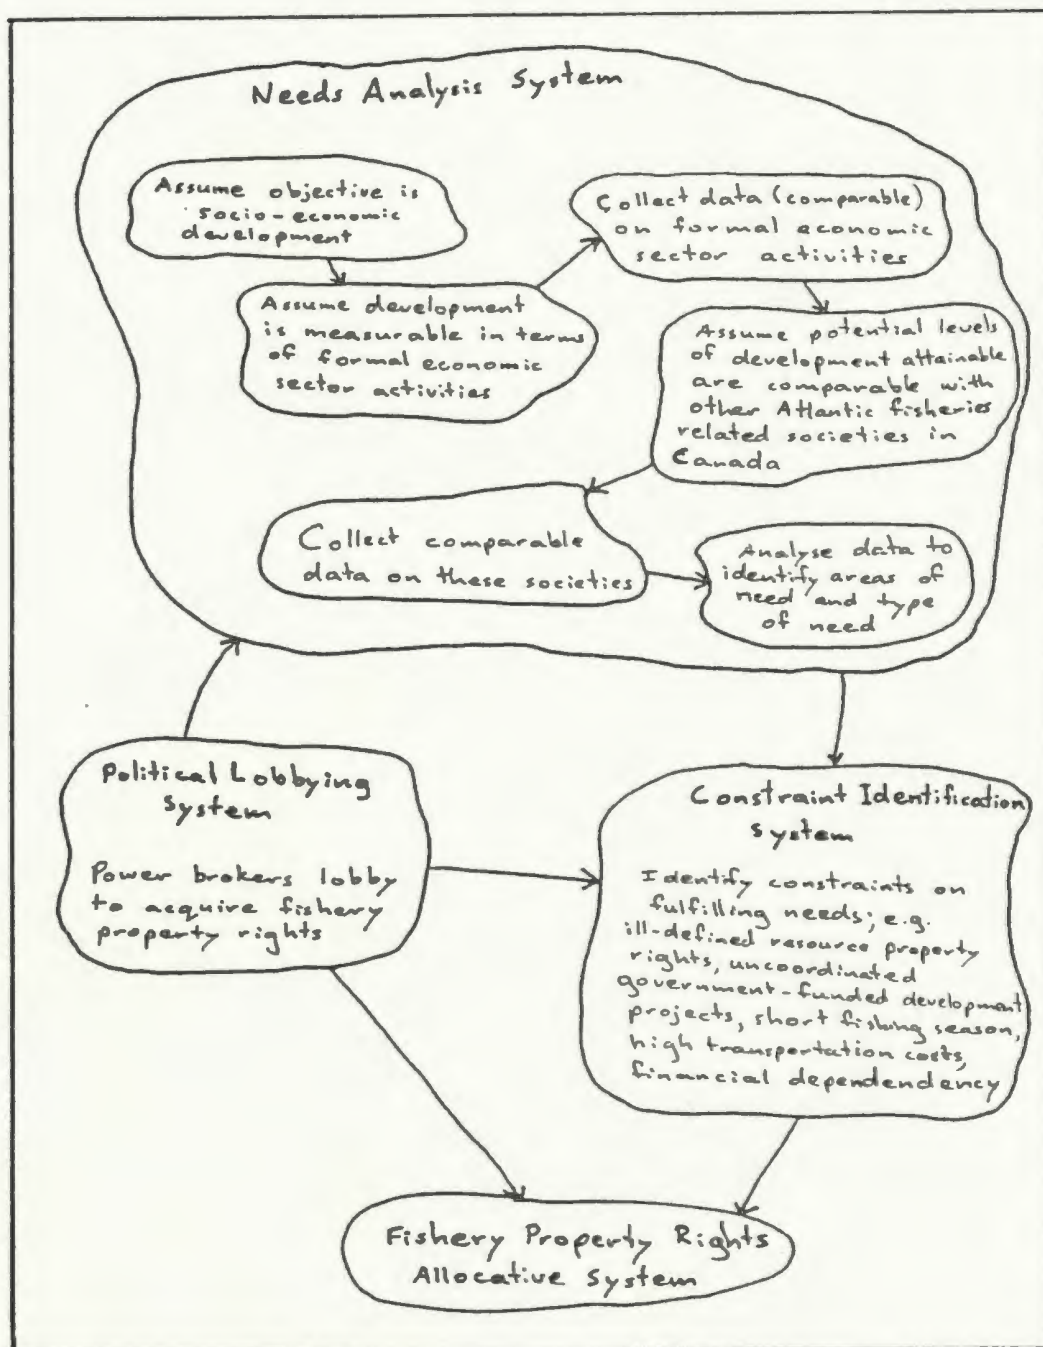 Needs Analysis System
Assume objective is
socio-economic
development
Assume development
is measurable in terms
of formal economic
sector activities
Collect data (comparable)
on formal economic
sector activities
Assume potential levels
of development attainable
are comparable with
other Atlantic fisheries
related societies in
Canada
Collect comparable
data on these societies
Analyse data to
identify areas of
need and type
of need
Political Lobbying
System
Power brokers lobby
to acquire fishery
property rights
Constraint Identification
System
Identify constraints on
fulfilling needs; e.g.
ill-defined resource property
rights, uncoordinated
government-funded development
projects, short fishing season,
high transportation costs,
financial dependendency
Fishery Property Rights
Allocative System